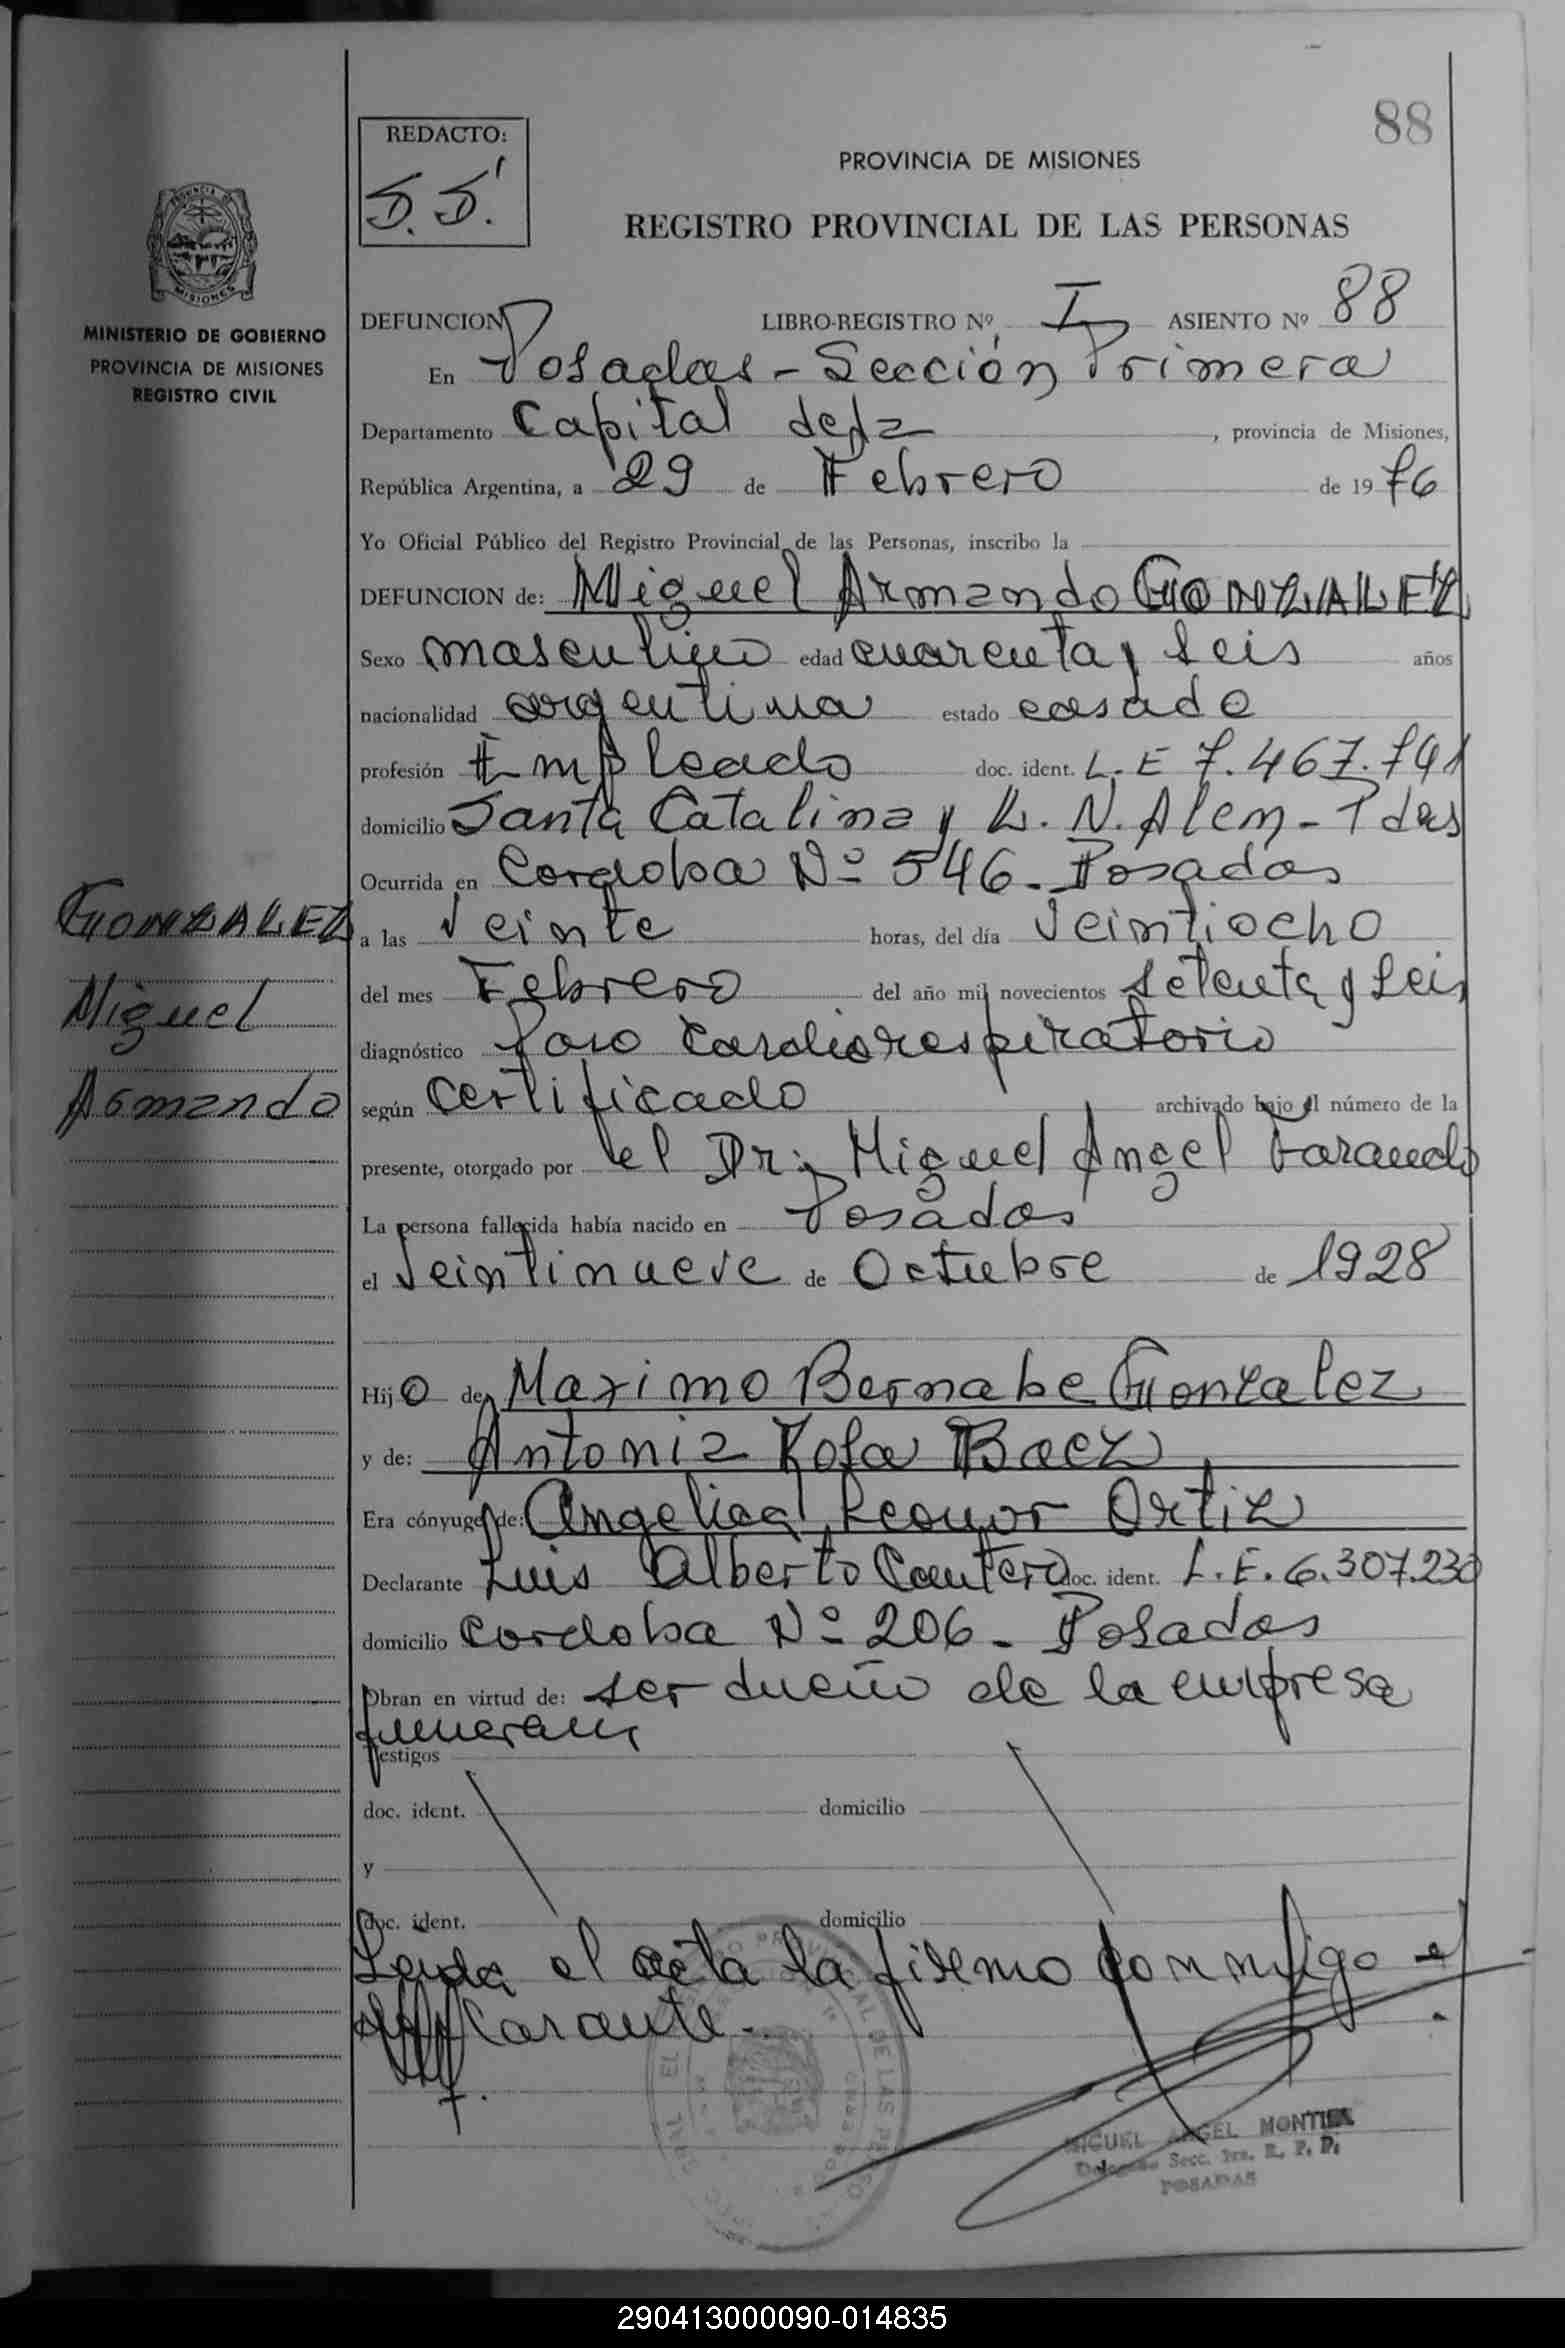 88
REDACTO:
S.S.
PROVINCIA DE MISIONES
REGISTRO PROVINCIAL DE LAS PERSONAS
MISIONES
MINISTERIO DE GOBIERNO
PROVINCIA DE MISIONES
REGISTRO CIVIL
DEFUNCION LIBRO-REGISTRO Nº I ASIENTO Nº 88
En Posadas - Sección Primera
Departamento Capital de la, provincia de Misiones,
República Argentina, a 29 de Febrero de 1976
Yo Oficial Público del Registro Provincial de las Personas, inscribo la
DEFUNCION de: Miguel Armando GONZALEZ
Sexo masculino edad cuarenta y seis años
nacionalidad argentina estado casado
profesión Empleado doc. ident. L.E 7.467.741
domicilio Santa Catalina y L. N. Alem - Pdas
Ocurrida en Cordoba Nº 546 - Posadas
a las Veinte horas, del día Veintiocho
del mes Febrero del año mil novecientos setenta y seis
diagnóstico Paro Cardiorespiratorio
según Certificado archivado bajo el número de la
presente, otorgado por el Dr. Miguel Angel
La persona fallecida había nacido en Posadas
el Veintinueve de Octubre de 1928
Hijo de Maximo Bernabe Gonzalez
y de: Antonia Rosa Baez
Era cónyuge de: Angelica Leonor Ortiz
Declarante Luis Alberto Cantero doc. ident. L.E. 6.307.230
domicilio Cordoba Nº 206 - Posadas
Obran en virtud de: ser dueño de la empresa
funeraria
Testigos
doc. ident. domicilio
y
doc. ident. domicilio
Leida el acta la firma conmigo el
declarante.
GONZALEZ
Miguel
Armando
MIGUEL ANGEL MONTIEL
Delegado Secc. 1ra. R. P. P.
POSADAS
290413000090-014835